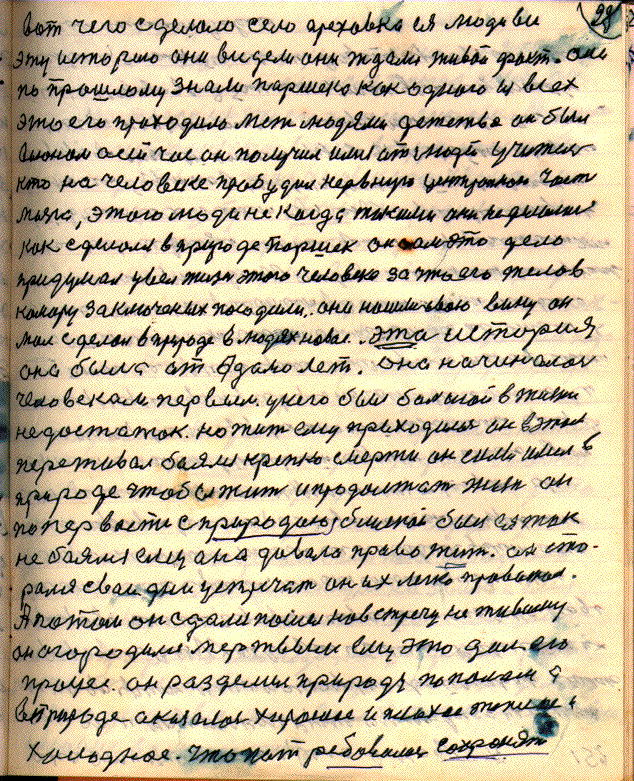 28
вот чего сделало село ореховка ся люди ви
эту историю они видели они ждали живой факт. они
по прошлому знали паршека как одного из всех
это его проходило меж людями детство он был
он получил учител
кто на человеке пробудил нервную центральною часть
мозга, этого люди не когда
как сделал в природе Паршек он сам это дело
придумал увел жизн этого человека за что его
камару заключоных посадили. они нашли свою вину он
мол сделал в природе в людях новое. эта история
она была от Адама лет. она началас
человеком первым. у него был болшой в жизни
недостаток. но жит ему приходилос он в этом
переживал баялся крепко смерти он силы имел в
природе чтоб жит и продолжат жизн он
по первости с природою близкой был ся так
не баялся ему она давала право жит. он сто-
рался сваи дни устречат он их легко провожал.
А потом он сдался пошел на встречу не живому
он огородился мертвым ему это дал его
процес он разделил природу пополам
в природе аказалос хорошое и плохое теплое и
холодное. что потребовалос сохронят